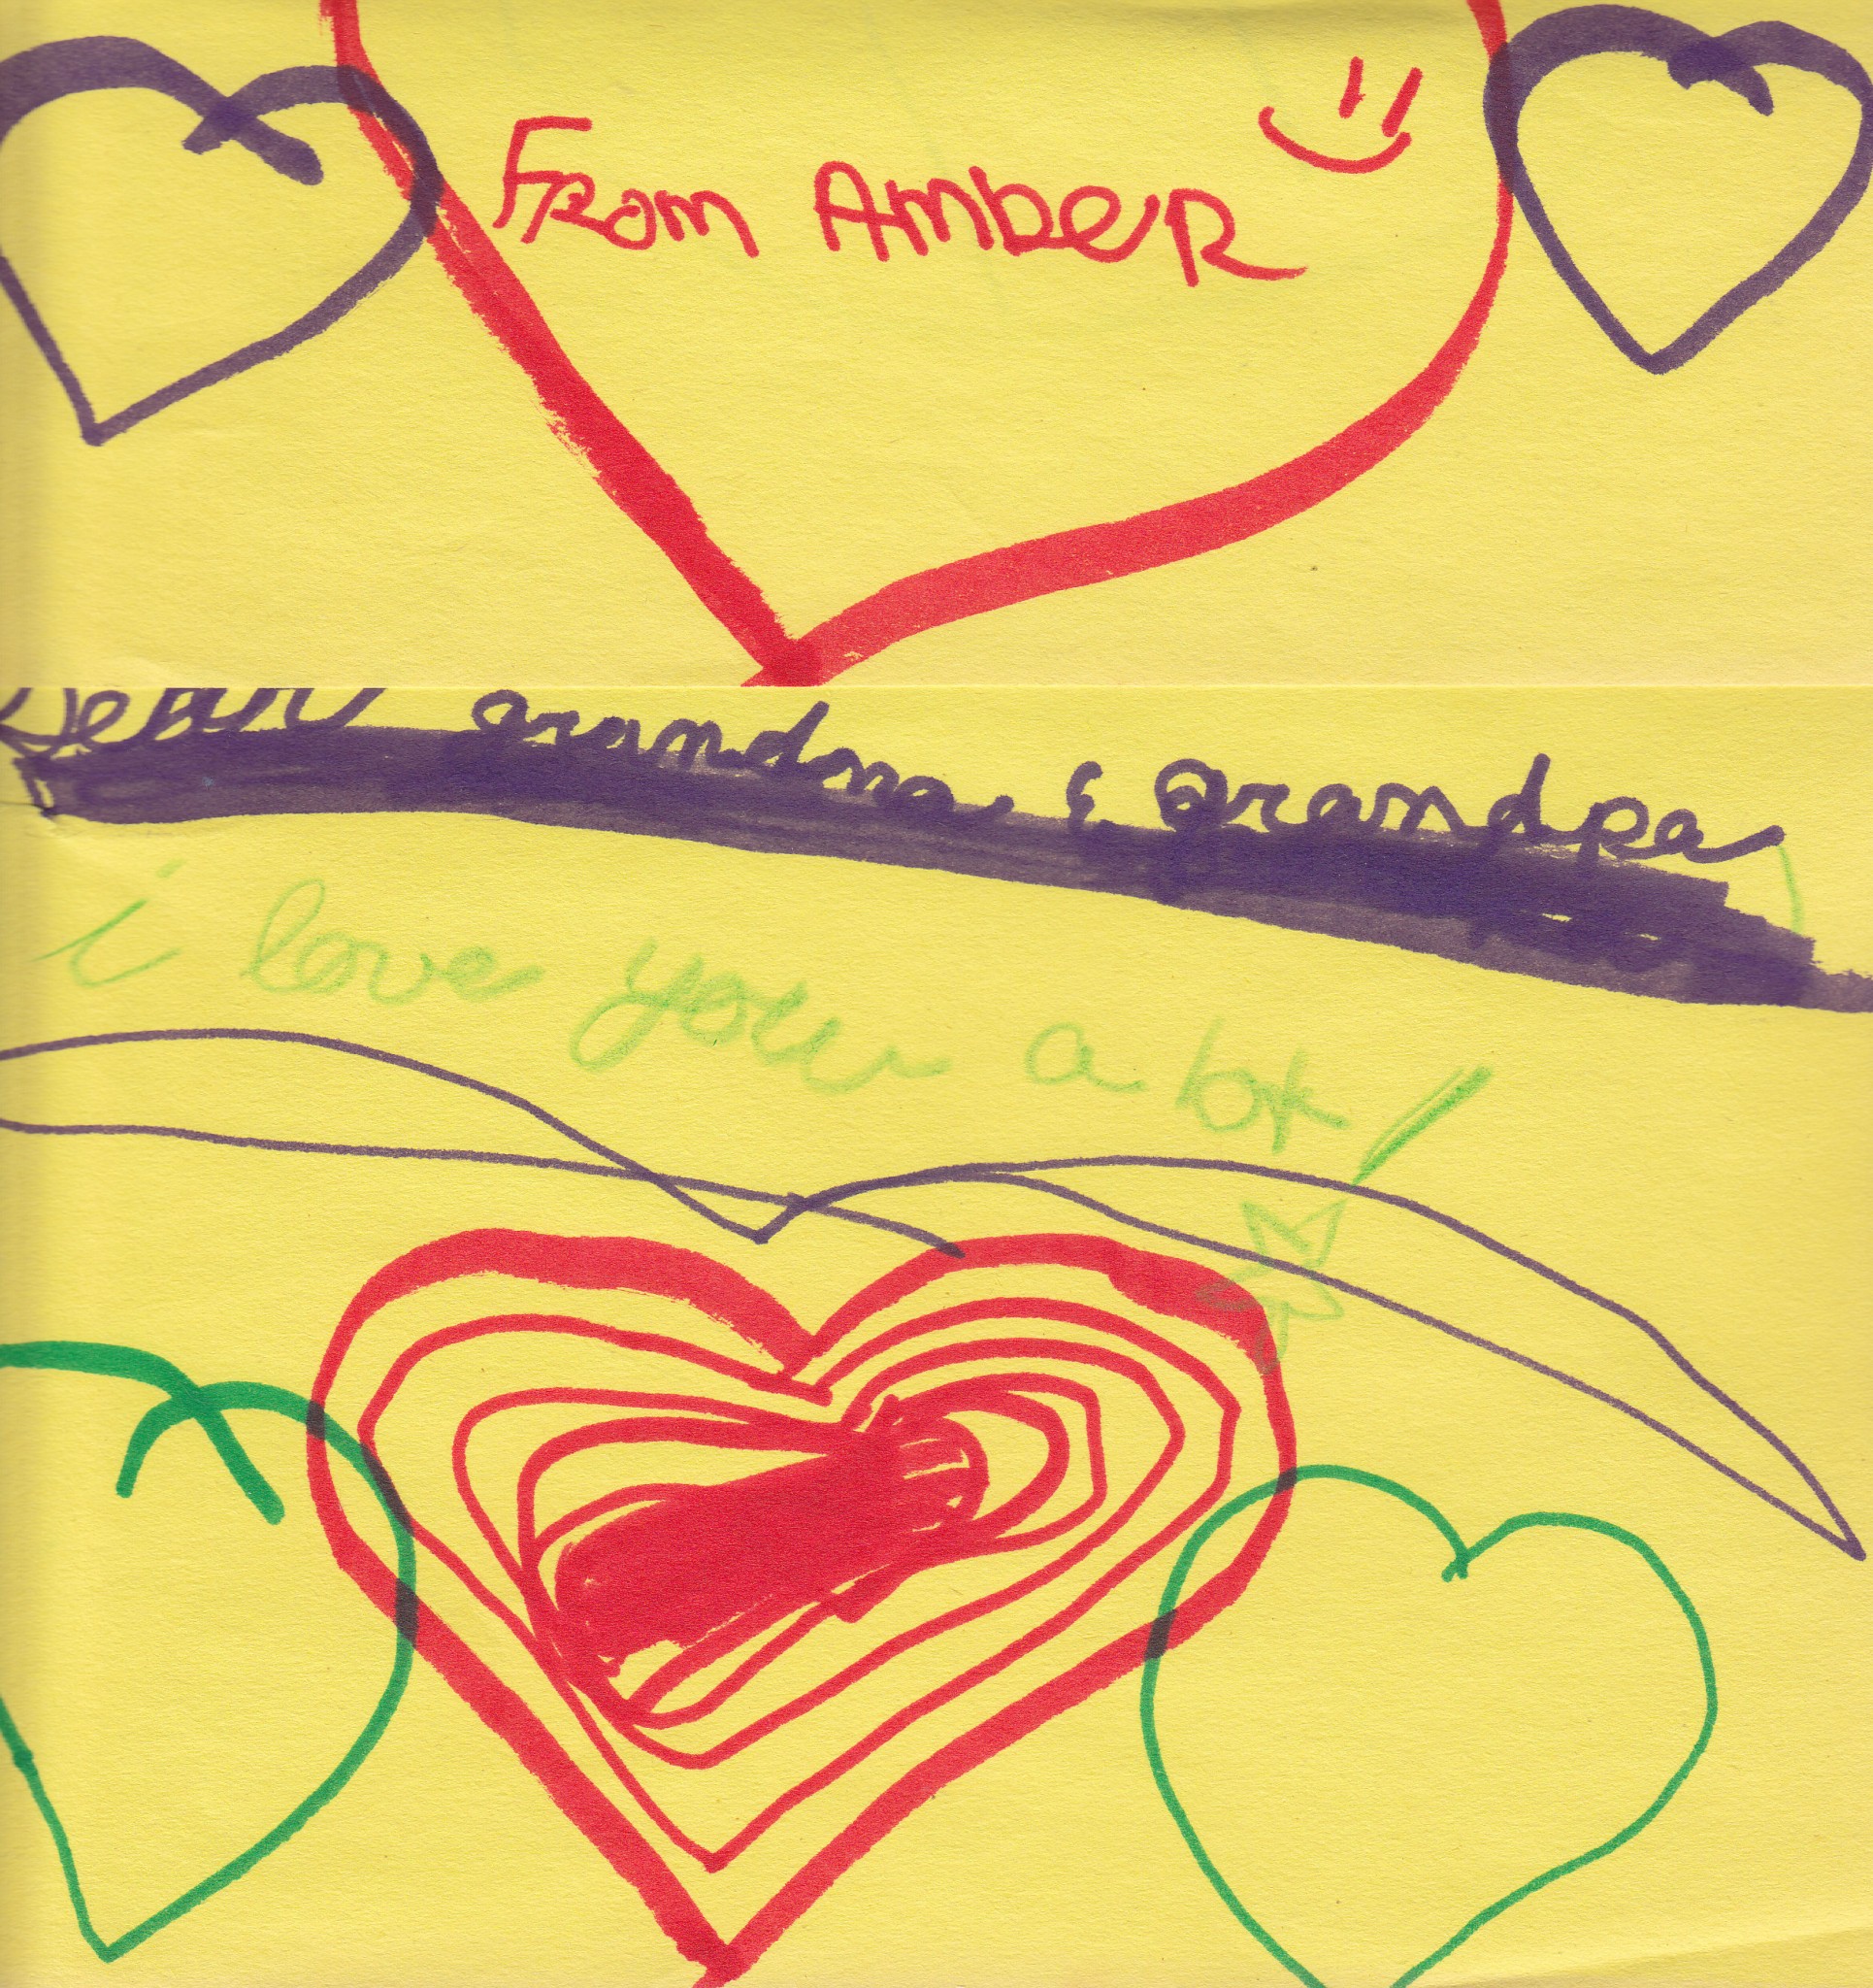 From Amber
Dear grandma & grandpa
i love you a lot!